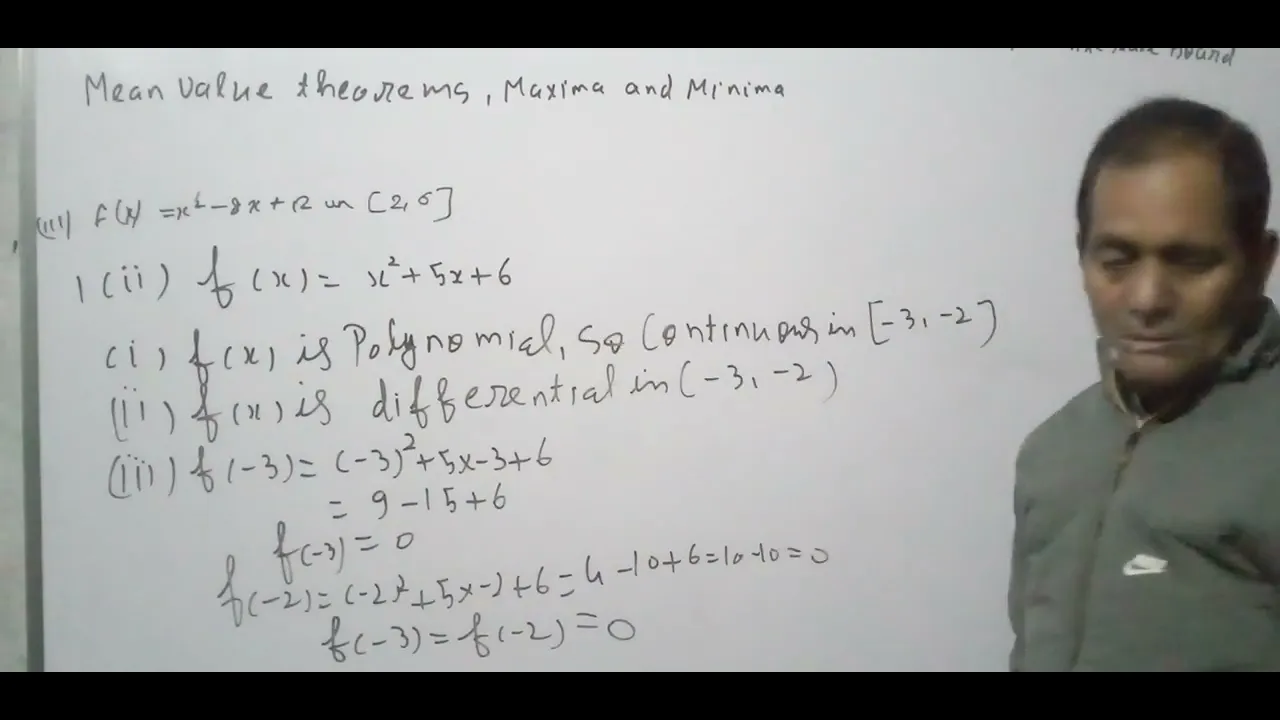 Mean value theorems, Maxima and Minima
(iii) f(x) = x² - 8x + 12 in [2, 6]
1 (ii) f(x) = x² + 5x + 6
(i) f(x) is Polynomial, so Continuous in [-3, -2]
(ii) f(x) is differential in (-3, -2)
(iii) f(-3) = (-3)² + 5x-3 + 6
= 9 - 15 + 6
f(-3) = 0
f(-2) = (-2)² + 5x-2 + 6 = 4 - 10 + 6 = 10 - 10 = 0
f(-3) = f(-2) = 0